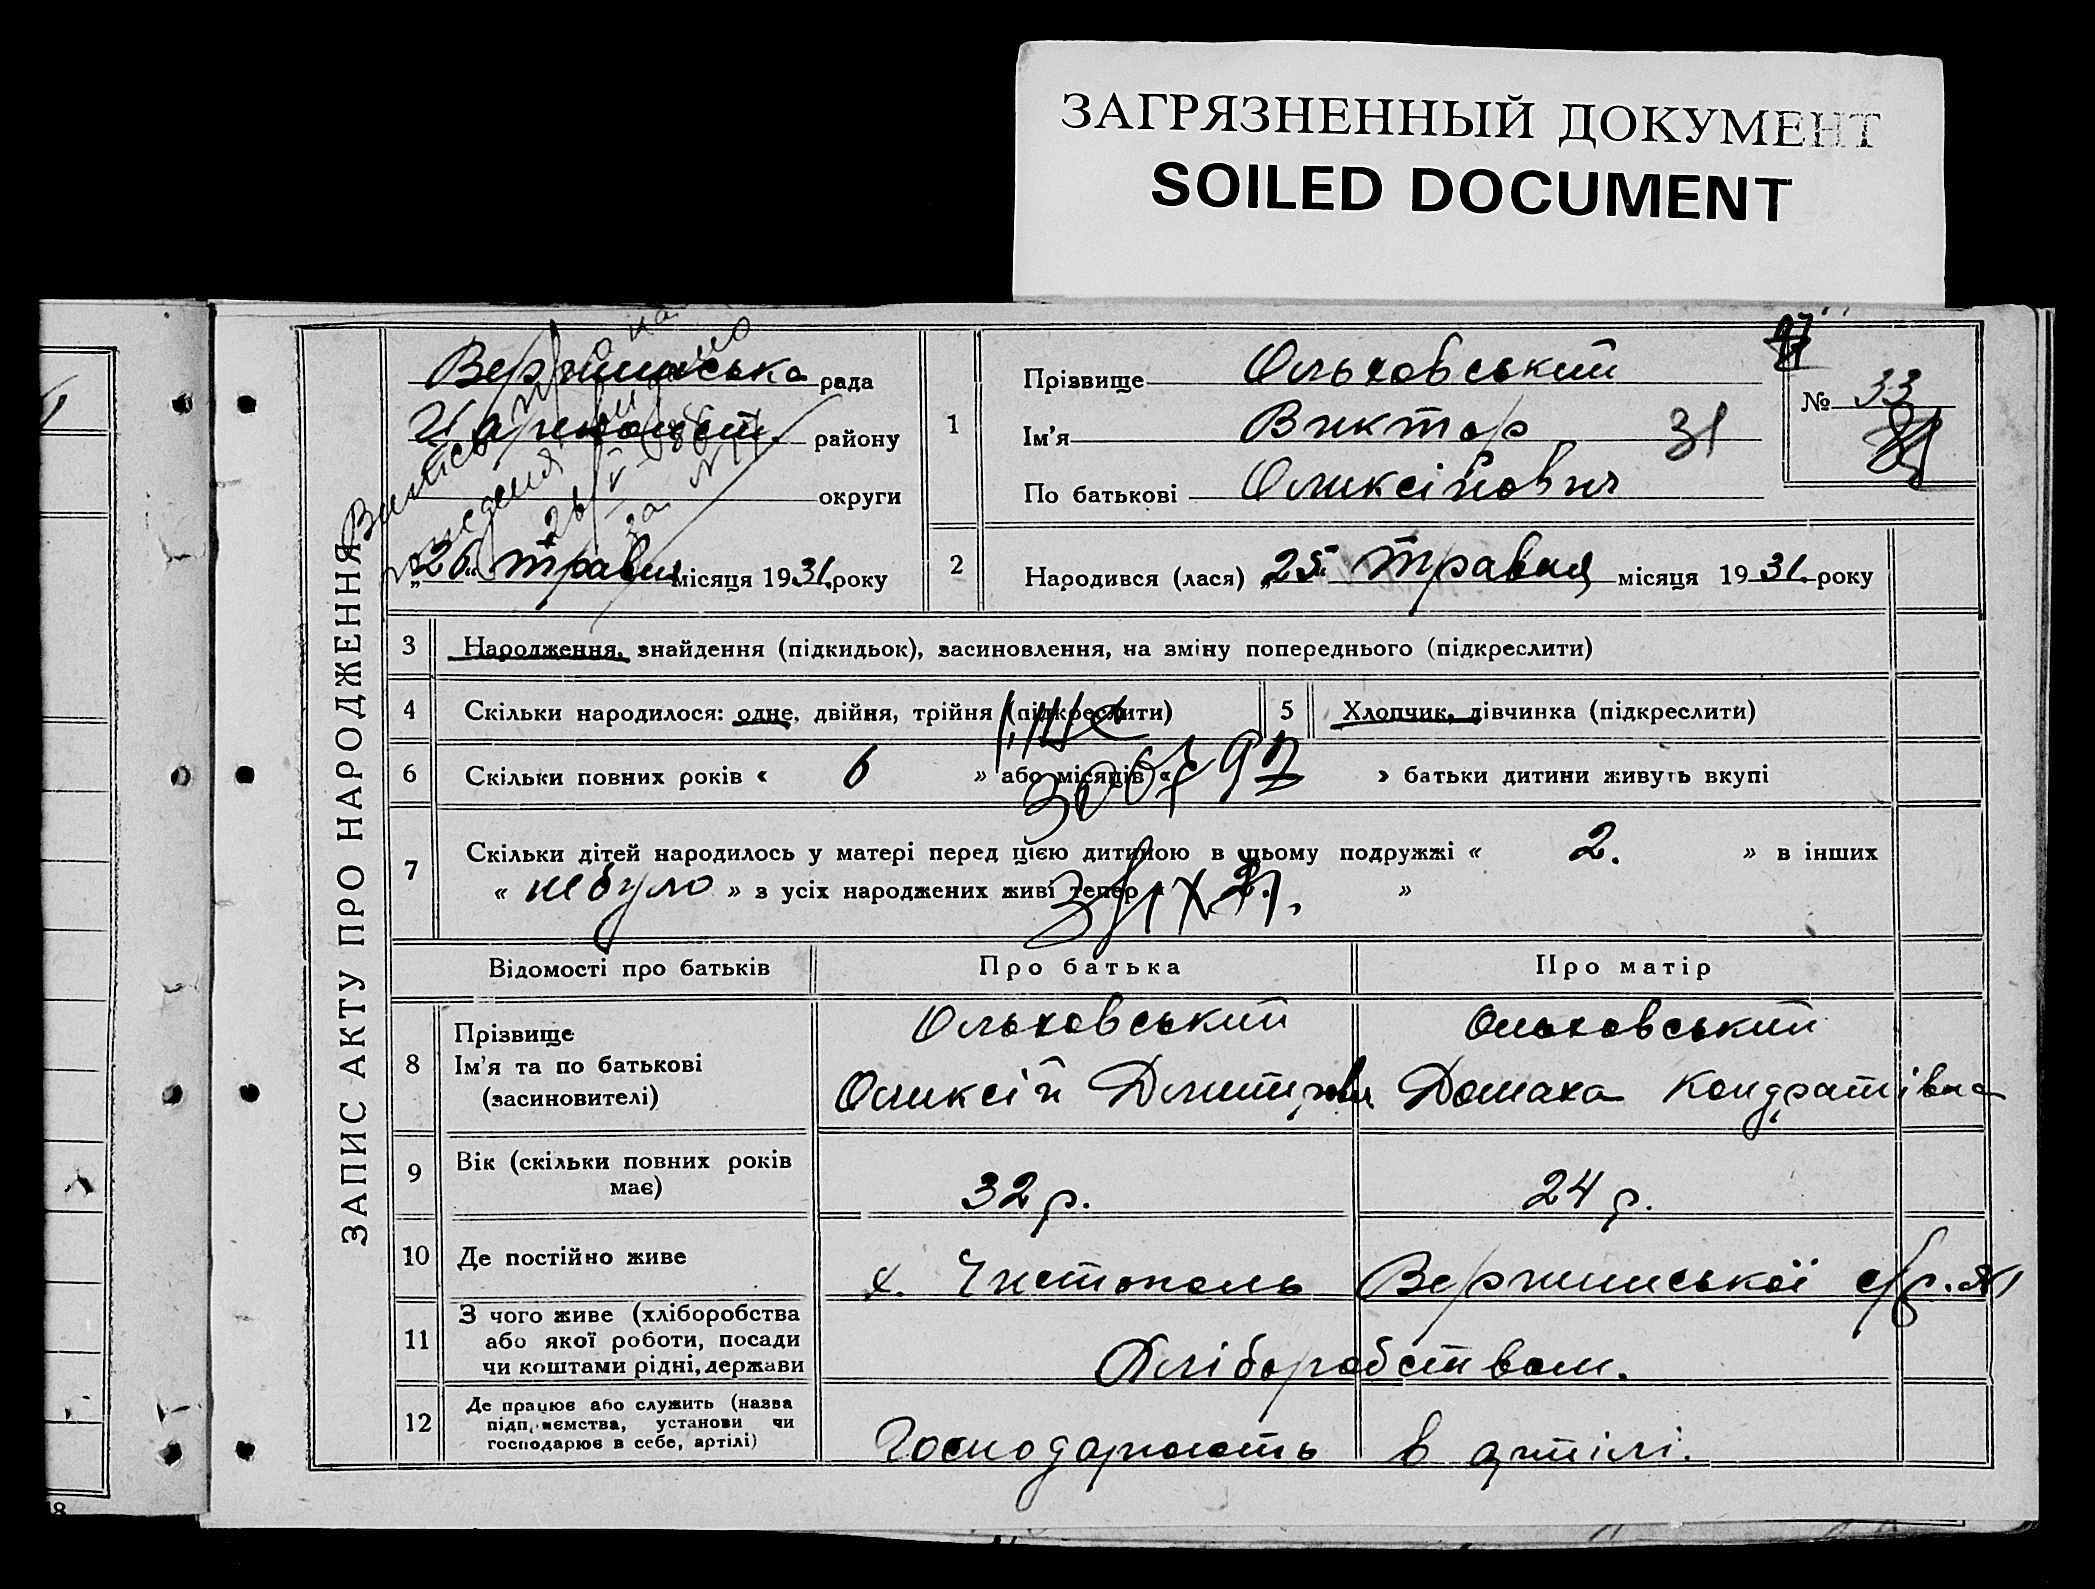 ЗАГРЯЗНЕННЫЙ ДОКУМЕНТ
SOILED DOCUMENT
ЗАПИС АКТУ ПРО НАРОДЖЕННЯ
рада
району
округи
„26“ травня місяця 1931. року
1
Прізвище Ольховський
Ім'я Виктор 31
По батькові Оликсійович
№ 33
2
Народився (лася) „25“ травня місяця 1931. року
3 Народження, знайдення (підкидьок), васиновлення, на зміну попереднього (підкреслити)
4 Скільки народилося: одне, двійня, трійня (підкреслити)
5 Хлопчик, дівчинка (підкреслити)
6 Скільки повних років « 6 » або місяців « » батьки дитини живуть вкупі
7 Скільки дітей народилось у матері перед цією дитиною в цьому подружжі « 2. » в інших
« небуло » з усіх народжених живі тепер « 2. »
Відомості про батьків
Про батька
Про матір
8 Прізвище
Ім'я та по батькові
(засиновителі)
Ольховський
Оликсій Дмитрович
Ольховський
Домаха Кондратівна
9 Вік (скільки повних років
має)
32 р.
24 р.
10 Де постійно живе
х. Чистополь Вершинської с/р.
11 З чого живе (хліборобства
або якої роботи, посади
чи коштами рідні, держави
Хліборобством.
12 Де працює або служить (назва
підприємства, установи чи
господарює в себе, артілі)
Господарюють в артілі.